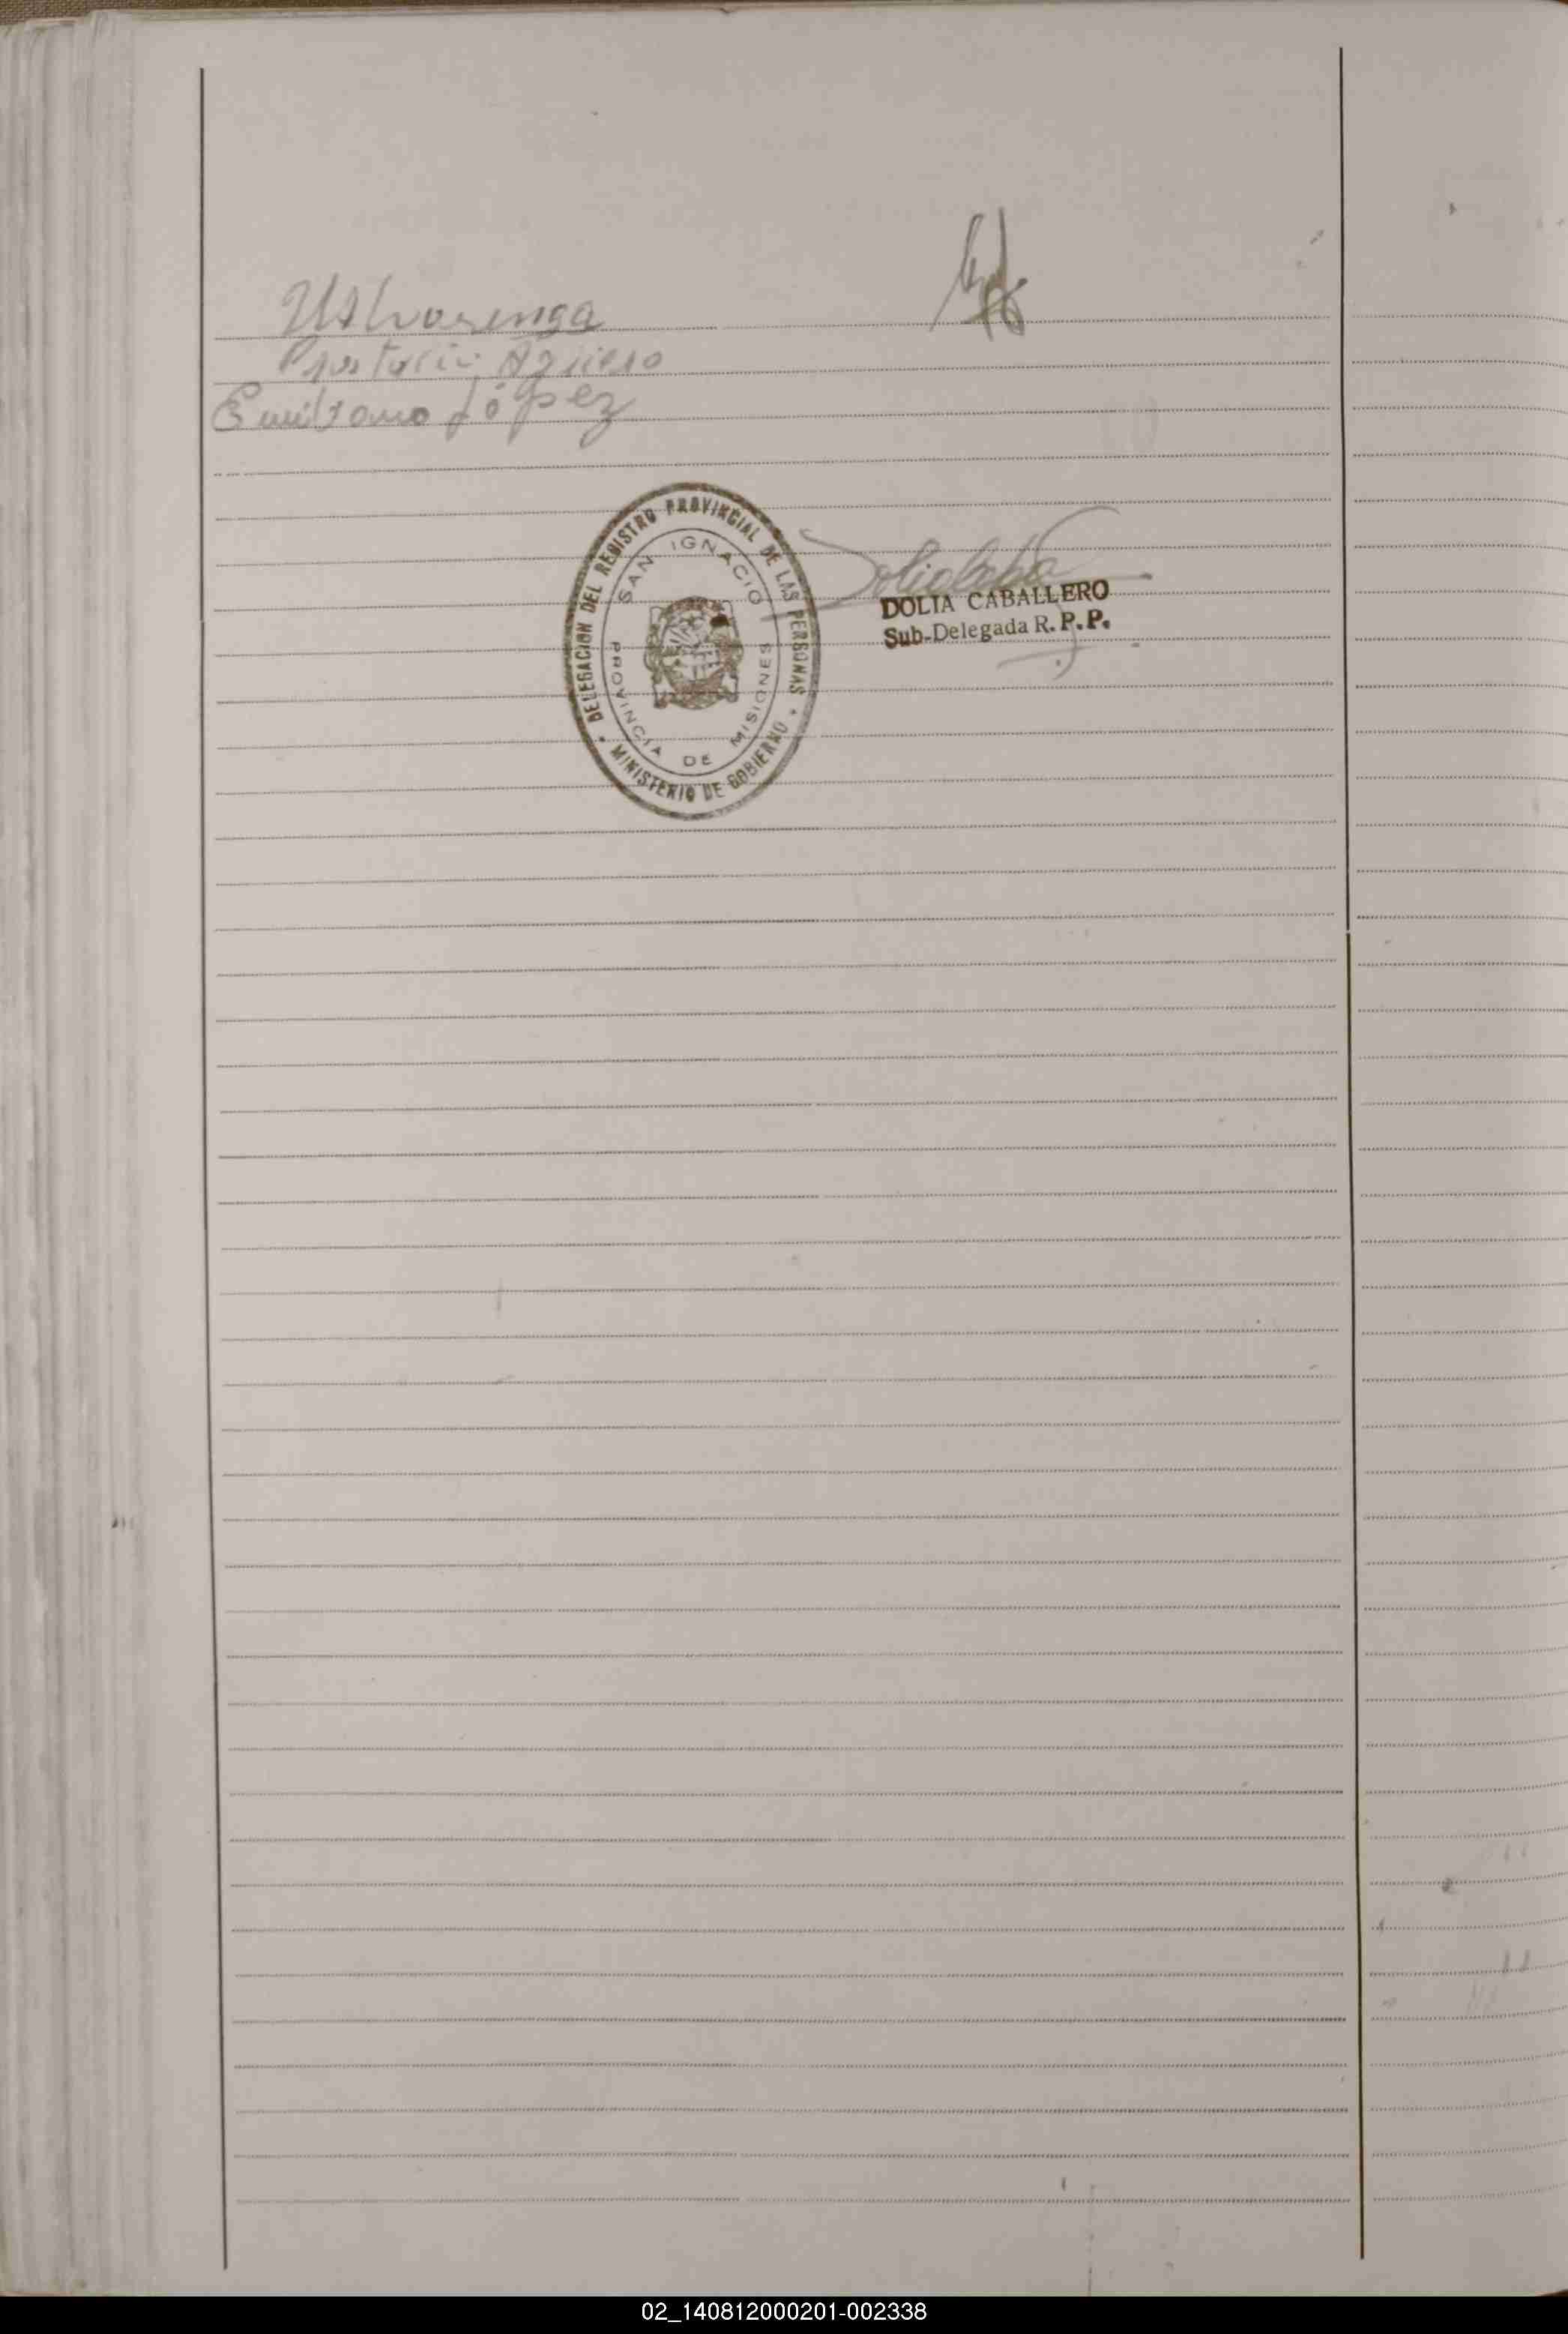 Alvarenga
Agüero
Emiliano López
DELEGACION DEL REGISTRO PROVINCIAL DE LAS PERSONAS
SAN IGNACIO
PROVINCIA DE MISIONES
MINISTERIO DE GOBIERNO
DOLIA CABALLERO
Sub-Delegada R. P. P.
02_140812000201-002338